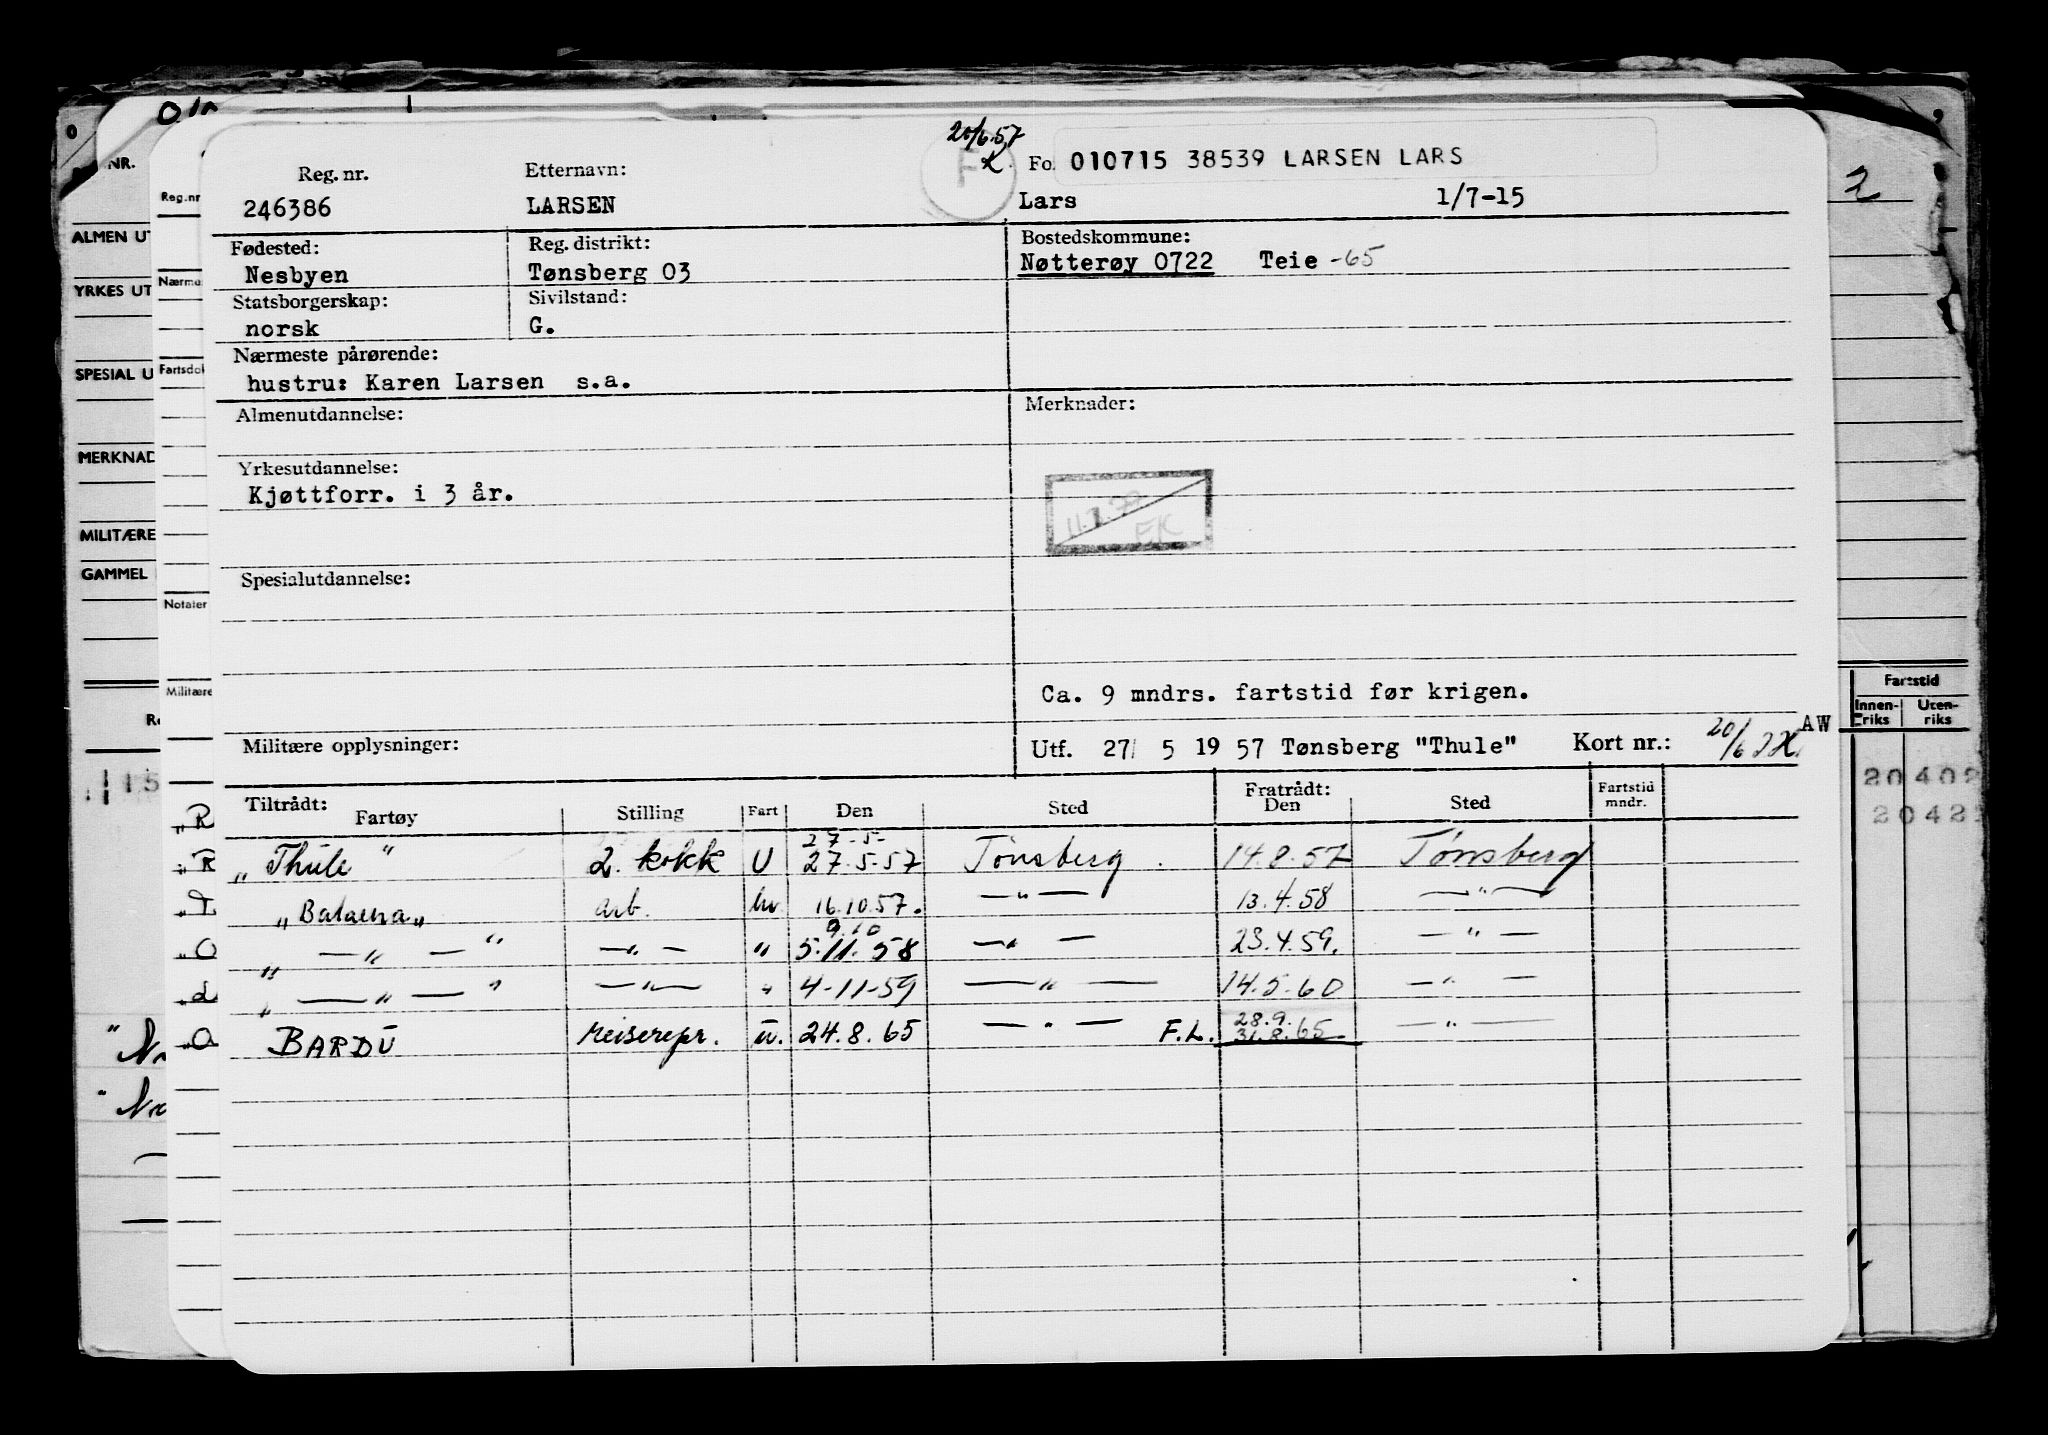 20/6.57
Reg. nr. Etternavn: K. Fo. 010715 38539 LARSEN LARS
246386 LARSEN F Lars 1/7-15 2
Fødested: Reg. distrikt: Bostedskommune:
Nesbyen Tønsberg 03 Nøtterøy 0722 Teie -65
Statsborgerskap: Sivilstand:
norsk G.
Nærmeste pårørende:
hustru: Karen Larsen s.a.
Almenutdannelse: Merknader:
Yrkesutdannelse:
Kjøttforr. i 3 år.
EK
Spesialutdannelse:
Ca. 9 mndrs. fartstid før krigen.
AW
Militære opplysninger: Utf. 27/ 5 19 57 Tønsberg "Thule" Kort nr.: 20/6
Tiltrådt: Fratrådt: Fartstid
Fartøy Stilling Fart Den Sted Den Sted mndr.
27-5-
„Thule" 2. kokk U 27.5.57 Tønsberg. 14.8.57 Tønsberg
„Balaena„ arb. hv. 16.10.57. —"— 13.4.58 —"—
9.10
„ —"— " —"— " 5.11.58 —"— 23.4.59. —"—
„ —"— " —"— " 4-11-59 —"— 14.5.60 —"—
28.9.
BARDU reiserepr. u. 24.8.65 —"— F.L. 31.8.65 —"—
NR.
ALMEN UT
YRKES UT
SPESIAL U
MERKNAD
MILITÆRE
GAMMEL
Reg.nr
Nærme
Fartsdok
Notater
Militære
Fartstid
Innen-riks Uten-riks
20402
2042